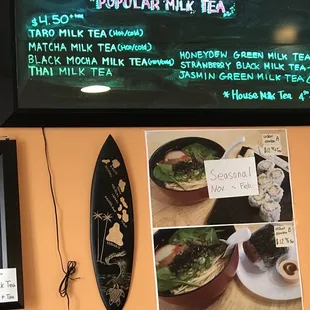 "POPULAR MILK TEA"
$4.50
TARO MILK TEA (Hot/cold)
MATCHA MILK TEA (Hot/cold)
BLACK MOCHA MILK TEA (Hot/cold)
THAI MILK TEA
HONEYDEW GREEN MILK TEA
STRAWBERRY BLACK MILK TEA
JASMIN GREEN MILK TEA
* HOUSE MILK TEA 4
Seasonal
Nov. ~ Feb.